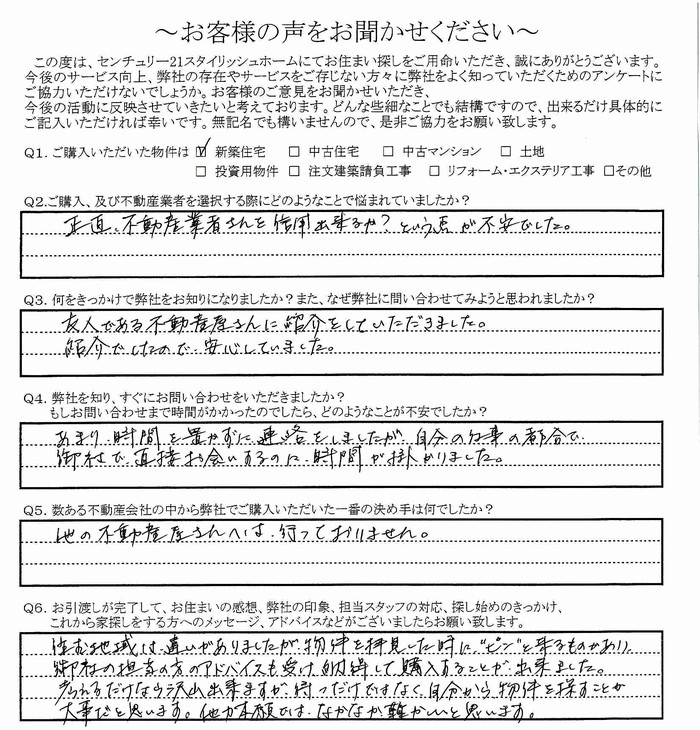 ～お客様の声をお聞かせください～
この度は、センチュリー21スタイリッシュホームにてお住まい探しをご用命いただき、誠にありがとうございます。
今後のサービス向上、弊社の存在やサービスをご存じない方々に弊社をよく知っていただくためのアンケートに
ご協力いただけないでしょうか。お客様のご意見をお聞かせいただき、
今後の活動に反映させていきたいと考えております。どんな些細なことでも結構ですので、出来るだけ具体的に
ご記入いただければ幸いです。無記名でも構いませんので、是非ご協力をお願い致します。
Q1. ご購入いただいた物件は ☑ 新築住宅 □ 中古住宅 □ 中古マンション □ 土地
□ 投資用物件 □ 注文建築請負工事 □ リフォーム・エクステリア工事 □その他
Q2.ご購入、及び不動産業者を選択する際にどのようなことで悩まれていましたか?
正直、不動産業者さんを信用出来るか?という点が不安でした。
Q3. 何をきっかけで弊社をお知りになりましたか?また、なぜ弊社に問い合わせてみようと思われましたか?
友人である不動産屋さんに紹介をしていただきました。
紹介でしたので、安心していました。
Q4. 弊社を知り、すぐにお問い合わせをいただきましたか?
もしお問い合わせまで時間がかかったのでしたら、どのようなことが不安でしたか?
あまり時間を置かずに連絡をしましたが、自分の仕事の都合で、
御社で直接お会いするのに時間が掛かりました。
Q5. 数ある不動産会社の中から弊社でご購入いただいた一番の決め手は何でしたか?
他の不動産屋さんへは、行っておりません。
Q6. お引渡しが完了して、お住まいの感想、弊社の印象、担当スタッフの対応、探し始めのきっかけ、
これから家探しをする方へのメッセージ、アドバイスなどがございましたらお願い致します。
住む地域は違いがありましたが、物件を拝見した時に"ピン"と来るものがあり、
御社の担当の方のアドバイスも受け、納得して購入することが出来ました。
考えるだけなら沢山出来ますが、待つだけではなく、自分から物件を探すことが
大事だと思います。他力本願では、なかなか難かしいと思います。